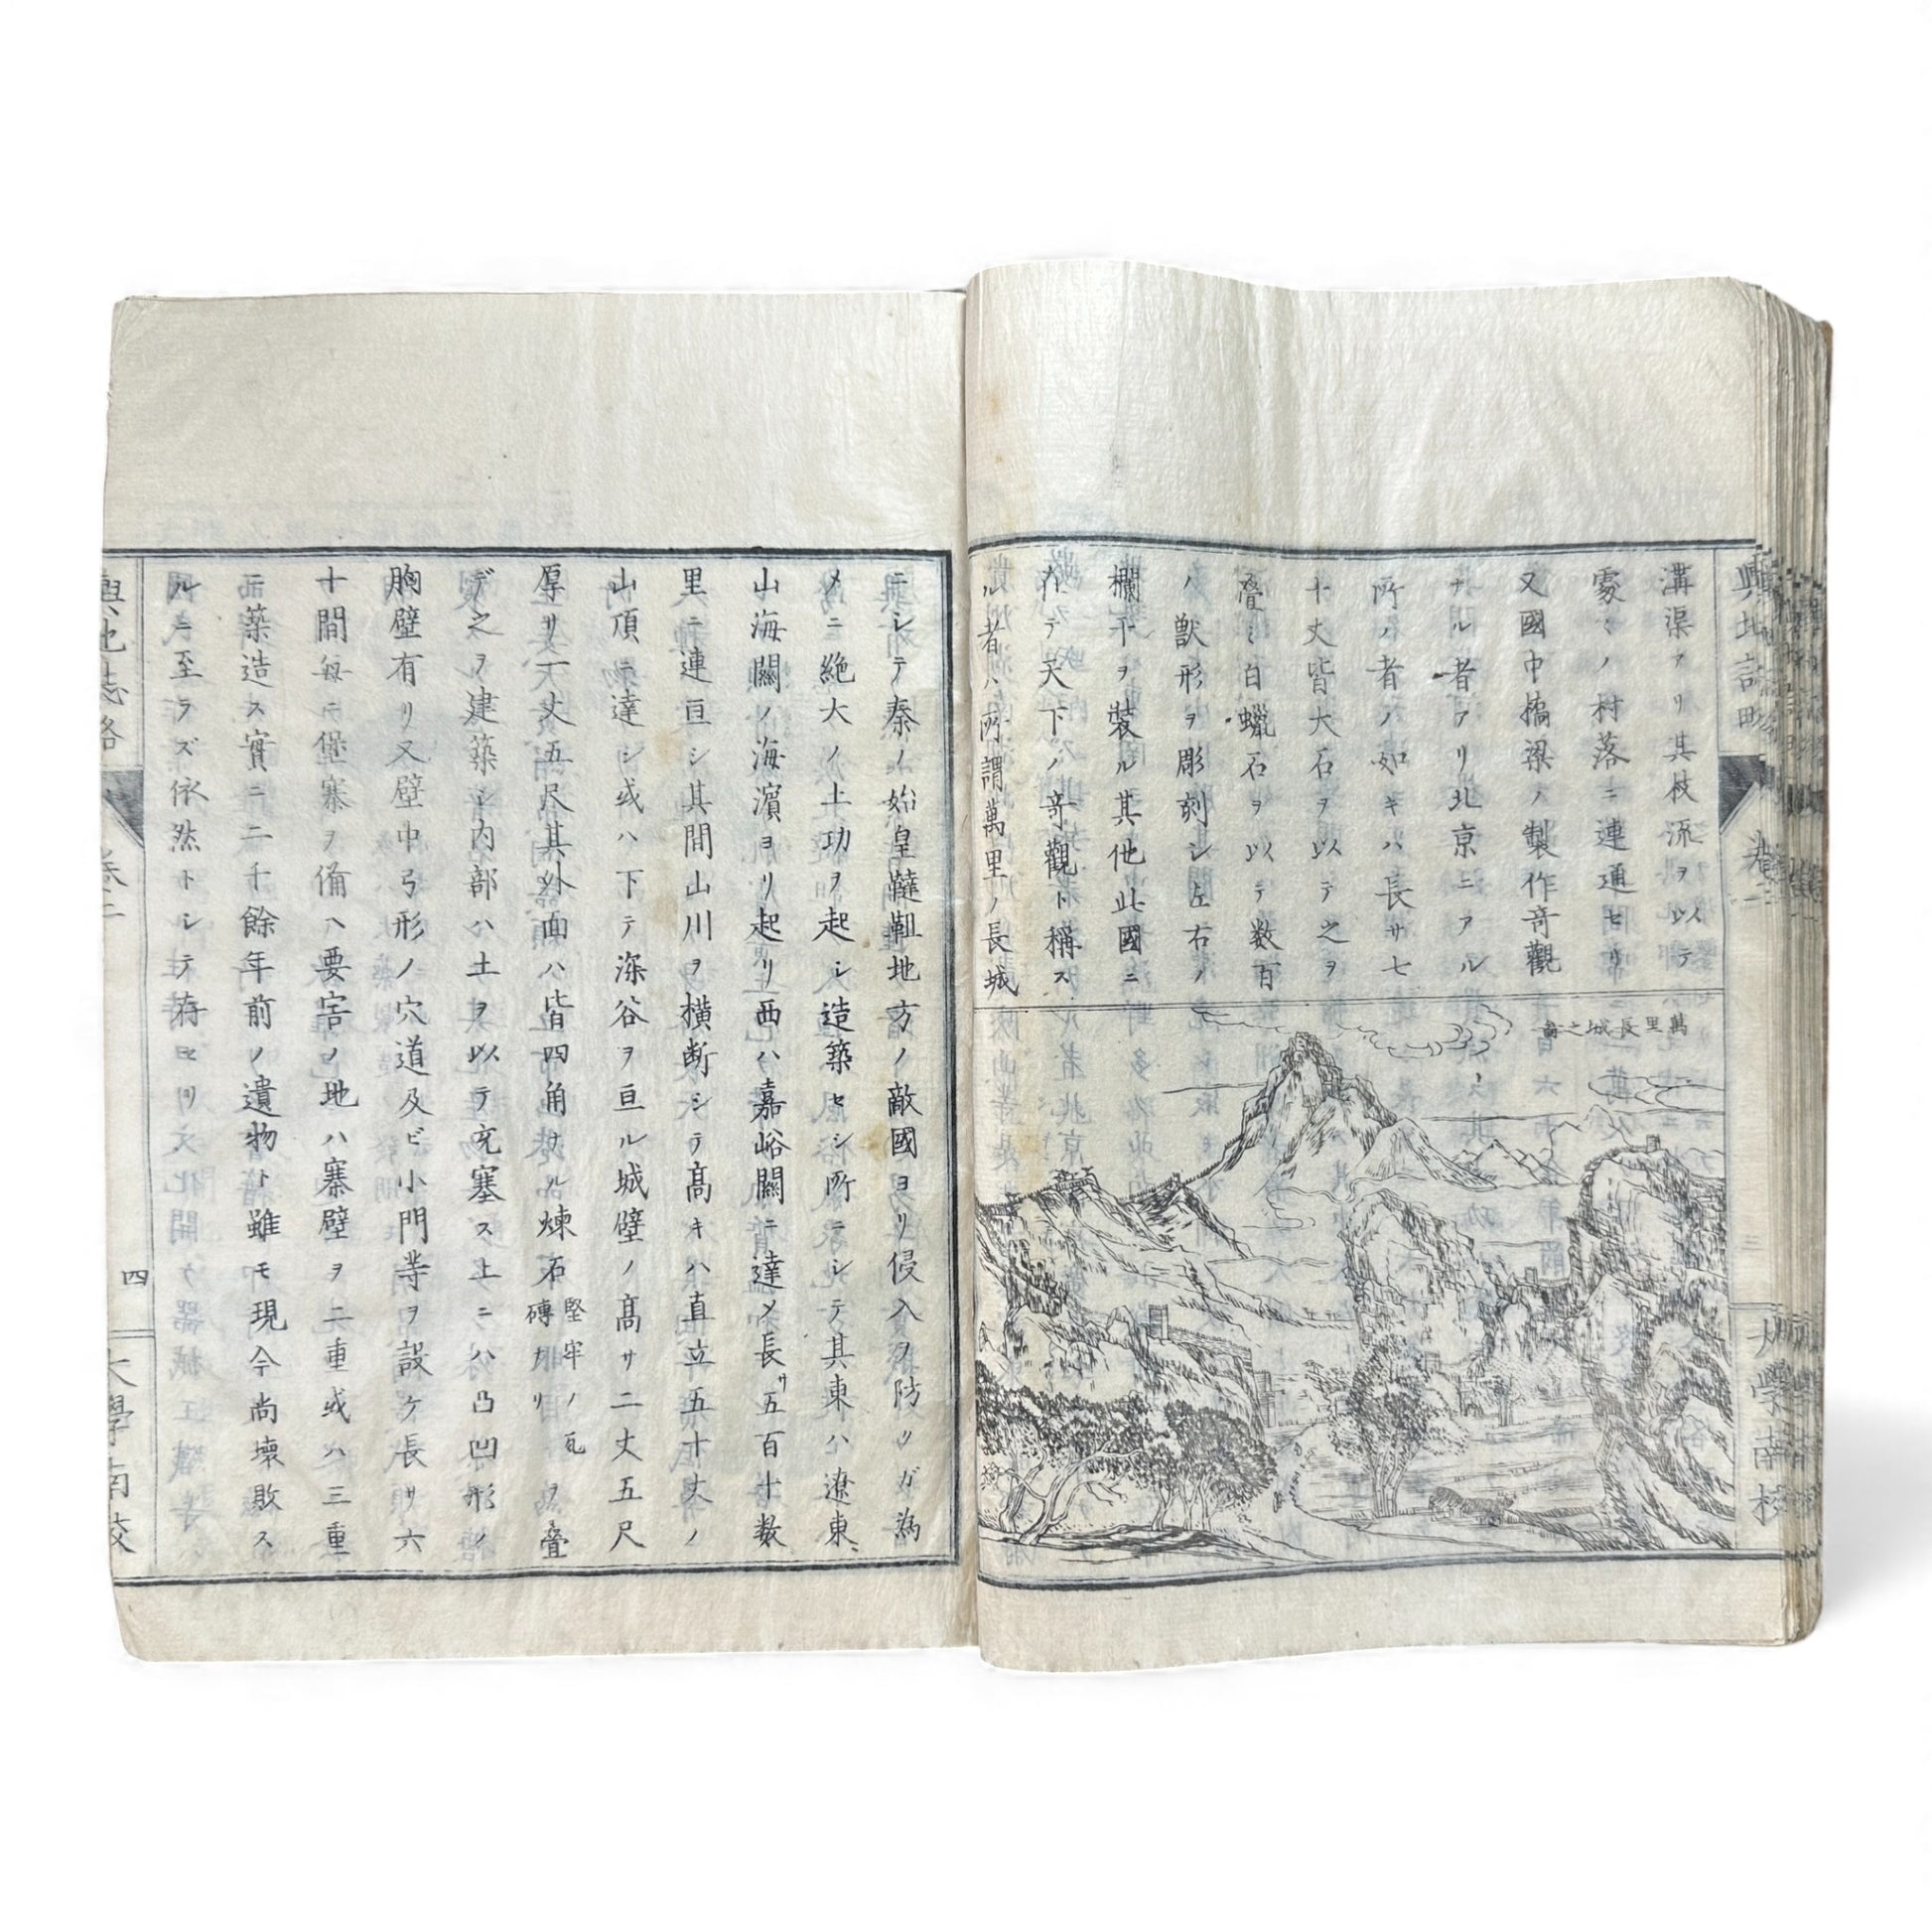 溝渠アリ其枝流ヲ以テ
家々ノ村落ニ連通セリ
又國中橋梁ノ製作奇觀
ナル者アリ北京ニアル
所ノ者ノ如キハ長サ七
十丈皆大石ヲ以テ之ヲ
疊ミ白蠟石ヲ以テ数百
ノ獣形ヲ彫刻シ左右ノ
欄干ヲ裝ル其他此國ニ
在テ天下ノ奇觀ト稱ス
ル者ハ所謂萬里ノ長城
萬里長城之圖
輿地誌略
卷二
三
大學南校
ニシテ秦ノ始皇韃靼地方ノ敵國ヨリ侵入ヲ防ツガ為
メニ絶大ノ土功ヲ起シ造築セシ所ニシテ其東ハ遼東、
山海關ノ海濱ヨリ起リ西ハ嘉峪關ニ達メ長サ五百十数
里ニ連亘シ其間山川ヲ横断シテ髙キハ直立五十丈ノ
山頂ニ達シ或ハ下テ深谷ヲ亘ル城壁ノ髙サ二丈五尺
厚サ一丈五尺其外面ハ皆四角ナル煉石堅牢ノ瓦磚ナリヲ疊
デ之ヲ建築シ内部ハ土ヲ以テ充塞ス上ニハ凸凹形ノ
胸壁有リ又壁中弓形ノ穴道及ビ小門等ヲ設ケ長サ六
十間毎ニ堡寨ヲ備ヘ要害ノ地ハ寨壁ヲ二重或ハ三重
ニ築造ス實ニ二千餘年前ノ遺物ト雖モ現今尚壊敗ス
ルニ至ラズ依然トシテ存セリ
輿地誌略
卷二
四
大學南校